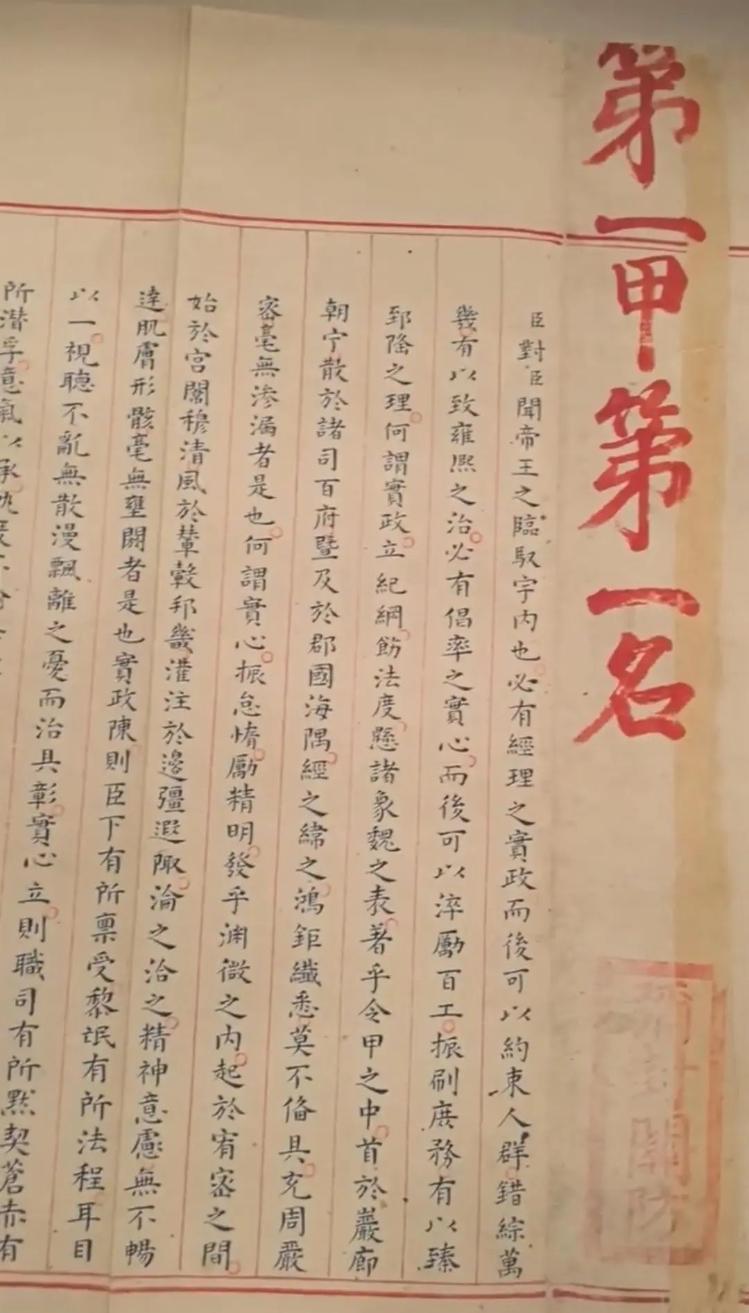 第一甲第一名
彌封關防
臣對臣聞帝王之臨馭宇內也必有經理之實政而後可以約束人群錯綜萬
幾有以致雍熙之治必有倡率之實心而後可以淬勵百工振刷庶務有以臻
郅隆之理何謂實政立紀綱飭法度懸諸象魏之表著乎令甲之中首於巖廊
朝宁散於諸司百府暨及於郡國海隅經之緯之鴻鉅纖悉莫不偹具充周嚴
密毫無滲漏者是也何謂實心振怠惰勵精明發乎淵微之內起於宥密之間
始於宮闈穆清風於輦轂邦畿灌注於邊疆遐陬淪之洽之精神意慮無不暢
達肌膚形骸毫無壅閼者是也實政陳則臣下有所稟受黎氓有所法程耳目
以一視聽不亂無散漫飄離之憂而治具彰實心立則職司有所默契蒼赤有
所潛孚意氣以承